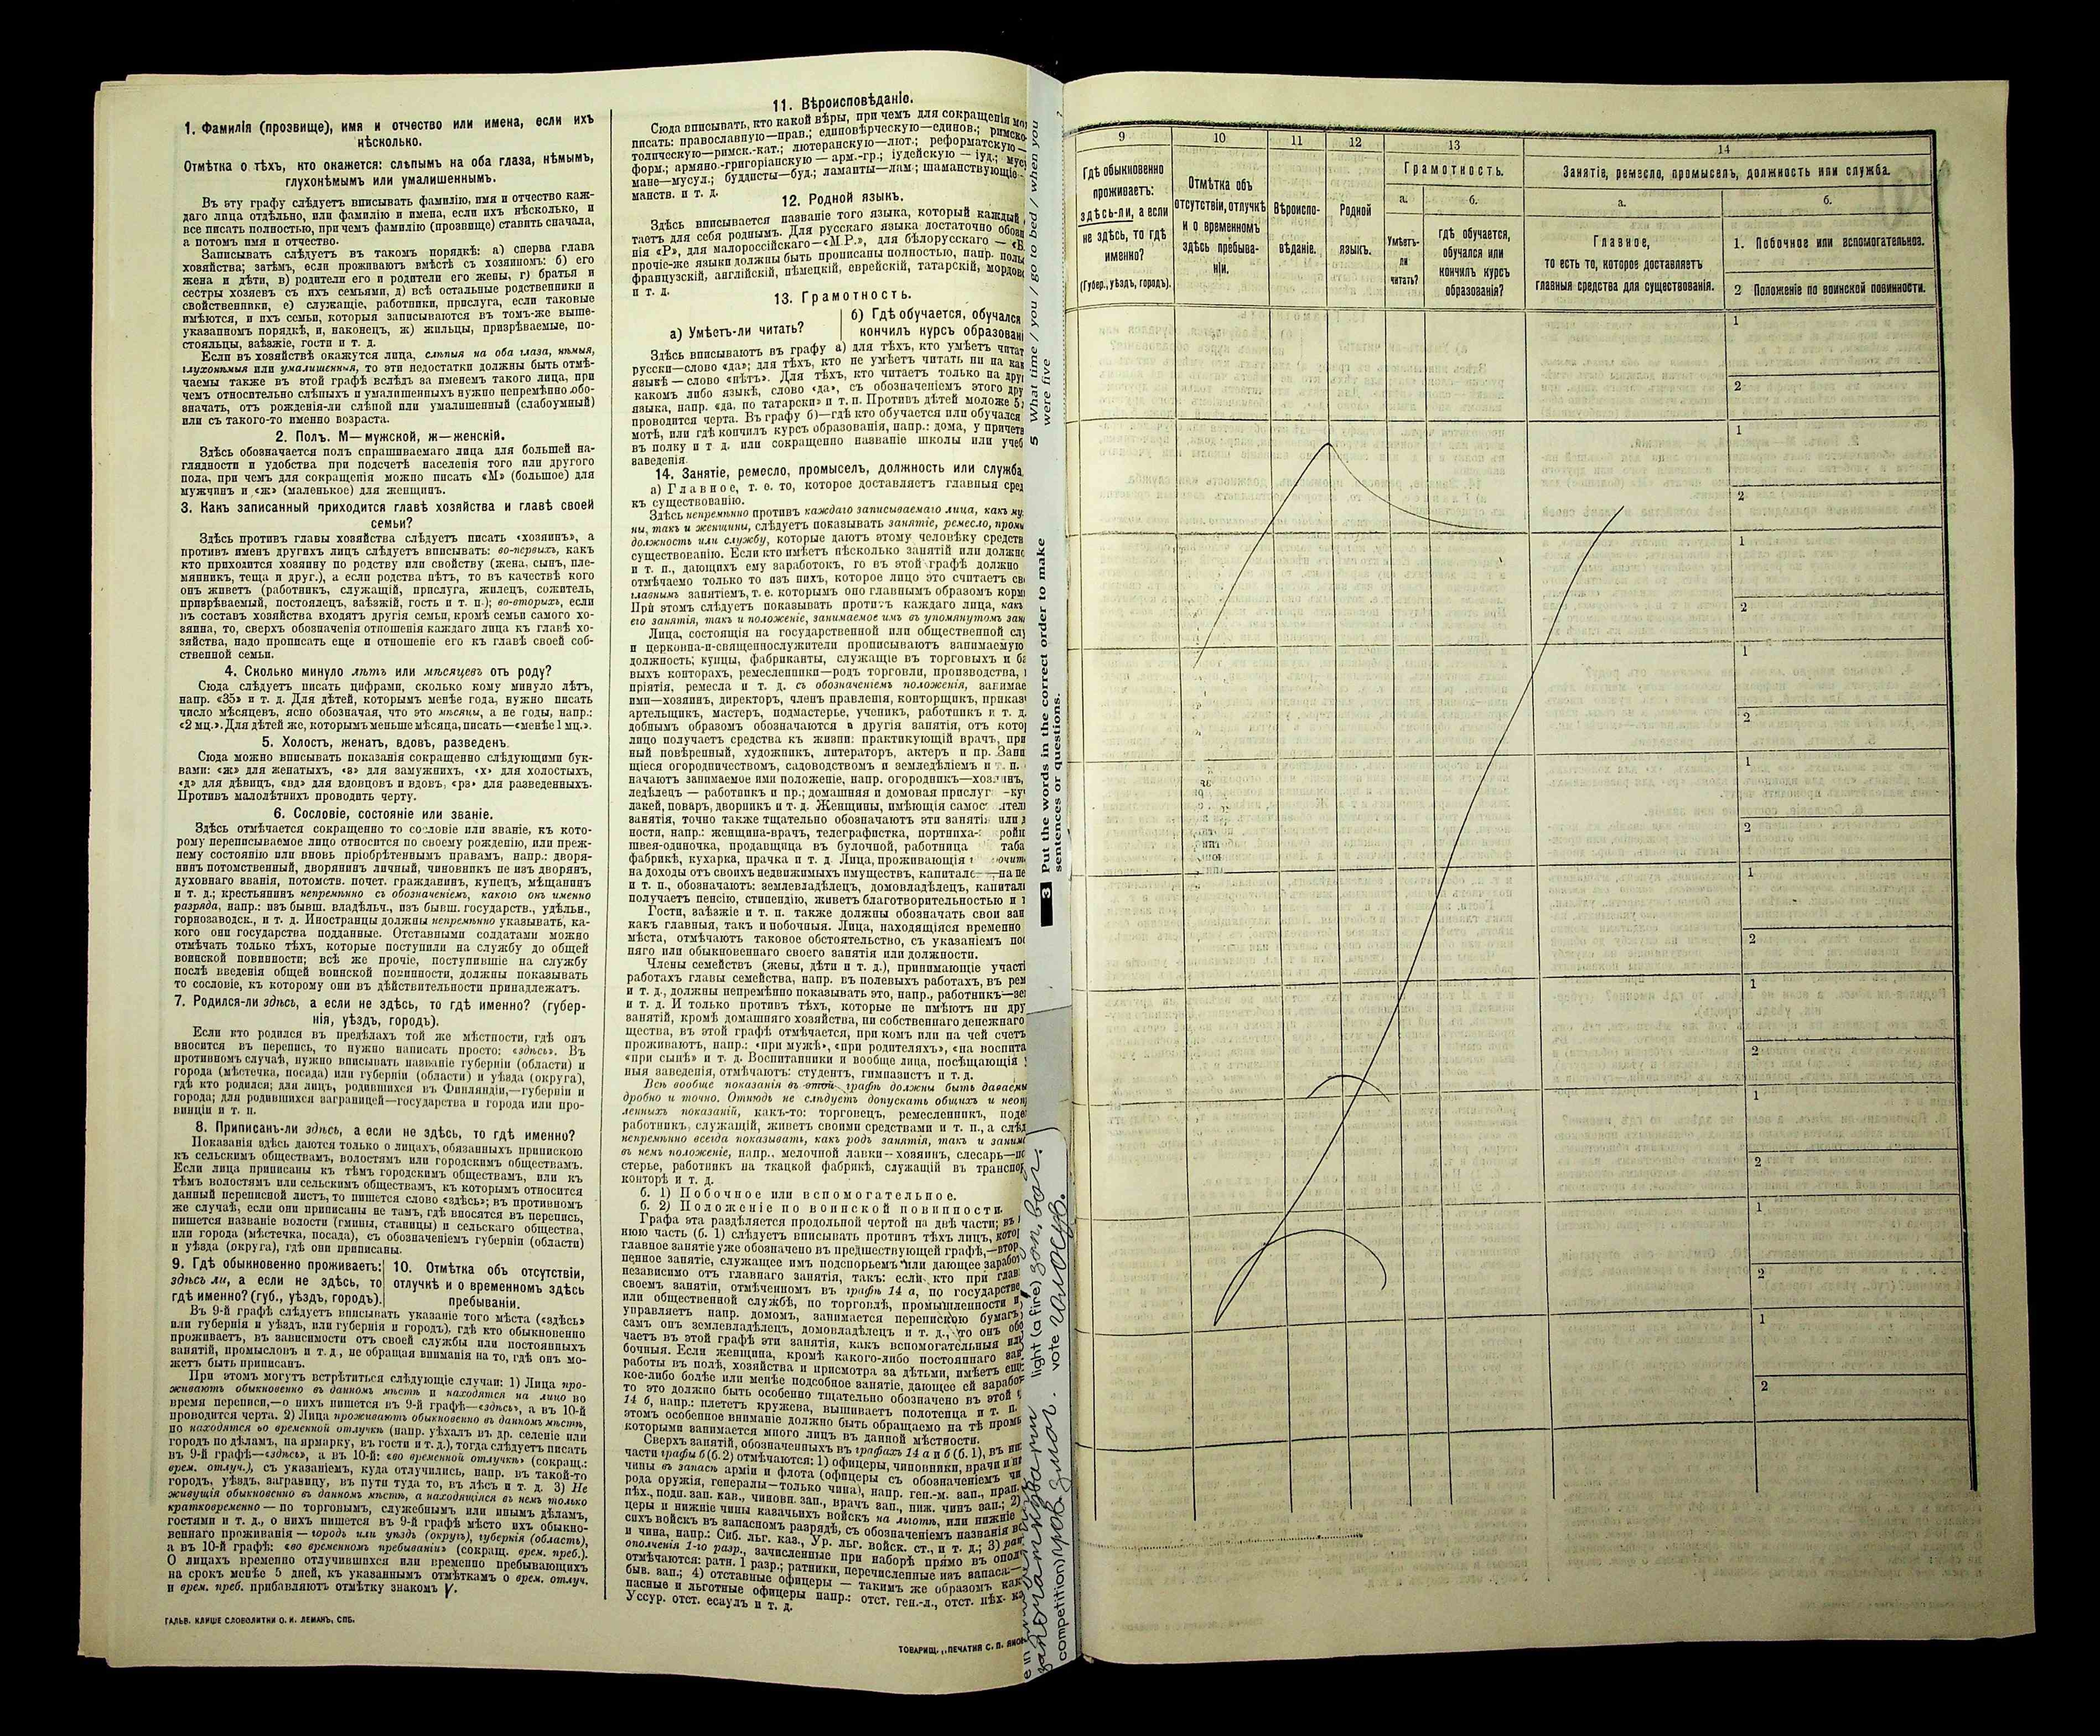 1. Фамилія (прозвище), имя и отчество или имена, если ихъ
нѣсколько.
Отмѣтка о тѣхъ, кто окажется: слѣпымъ на оба глаза, нѣмымъ,
глухонѣмымъ или умалишеннымъ.
Въ эту графу слѣдуетъ вписывать фамилію, имя и отчество каж-
даго лица отдѣльно, или фамилію и имена, если ихъ нѣсколько, и
все писать полностью, при чемъ фамилію (прозвище) ставить сначала,
а потомъ имя и отчество.
Записывать слѣдуетъ въ такомъ порядкѣ: а) сперва глава
хозяйства; затѣмъ, если проживаютъ вмѣстѣ съ хозяиномъ: б) его
жена и дѣти, в) родители его и родители его жены, г) братья и
сестры хозяевъ съ ихъ семьями, д) всѣ остальные родственники и
свойственники, е) служащіе, работники, прислуга, если таковые
имѣются, и ихъ семьи, которыя записываются въ томъ-же выше-
указанномъ порядкѣ, и, наконецъ, ж) жильцы, призрѣваемые, по-
стояльцы, заѣзжіе, гости и т. д.
Если въ хозяйствѣ окажутся лица, слѣпыя на оба глаза, нѣмыя,
глухонѣмыя или умалишенныя, то эти недостатки должны быть отмѣ-
чаемы также въ этой графѣ вслѣдъ за именемъ такого лица, при
чемъ относительно слѣпыхъ и умалишенныхъ нужно непремѣнно обо-
значать, отъ рожденія-ли слѣпой или умалишенный (слабоумный)
или съ такого-то именно возраста.
2. Полъ. М—мужской, ж—женскій.
Здѣсь обозначается полъ спрашиваемаго лица для большей на-
глядности и удобства при подсчетѣ населенія того или другого
пола, при чемъ для сокращенія можно писать «М» (большое) для
мужчинъ и «ж» (маленькое) для женщинъ.
3. Какъ записанный приходится главѣ хозяйства и главѣ своей
семьи?
Здѣсь противъ главы хозяйства слѣдуетъ писать «хозяинъ», а
противъ именъ другихъ лицъ слѣдуетъ вписывать: во-первыхъ, какъ
кто приходится хозяину по родству или свойству (жена, сынъ, пле-
мянникъ, теща и друг.), а если родства нѣтъ, то въ качествѣ кого
онъ живетъ (работникъ, служащій, прислуга, жилецъ, сожитель,
призрѣваемый, постоялецъ, заѣзжій, гость и т. п.); во-вторыхъ, если
въ составъ хозяйства входятъ другія семьи, кромѣ семьи самого хо-
зяина, то, сверхъ обозначенія отношенія каждаго лица къ главѣ хо-
зяйства, надо прописать еще и отношеніе его къ главѣ своей соб-
ственной семьи.
4. Сколько минуло лѣтъ или мѣсяцевъ отъ роду?
Сюда слѣдуетъ писать цифрами, сколько кому минуло лѣтъ,
напр. «35» и т. д. Для дѣтей, которымъ менѣе года, нужно писать
число мѣсяцевъ, ясно обозначая, что это мѣсяцы, а не годы, напр.:
«2 мц.». Для дѣтей же, которымъ меньше мѣсяца, писать—«менѣе 1 мц.».
5. Холостъ, женатъ, вдовъ, разведенъ.
Сюда можно вписывать показанія сокращенно слѣдующими бук-
вами: «ж» для женатыхъ, «з» для замужнихъ, «х» для холостыхъ,
«д» для дѣвицъ, «вд» для вдовцовъ и вдовъ, «рз» для разведенныхъ.
Противъ малолѣтнихъ проводить черту.
6. Сословіе, состояніе или званіе.
Здѣсь отмѣчается сокращенно то сословіе или званіе, къ кото-
рому переписываемое лицо относится по своему рожденію, или преж-
нему состоянію или вновь пріобрѣтеннымъ правамъ, напр.: дворя-
нинъ потомственный, дворянинъ личный, чиновникъ не изъ дворянъ,
духовнаго званія, потомств. почет. гражданинъ, купецъ, мѣщанинъ
и т. д.; крестьянинъ непремѣнно съ обозначеніемъ, какого онъ именно
разряда, напр.: изъ бывш. владѣльч., изъ бывш. государств., удѣльн.,
горнозаводск., и т. д. Иностранцы должны непремѣнно указывать, ка-
кого они государства подданные. Отставными солдатами можно
отмѣчать только тѣхъ, которые поступили на службу до общей
воинской повинности; всѣ же прочіе, поступившіе на службу
послѣ введенія общей воинской повинности, должны показывать
то сословіе, къ которому они въ дѣйствительности принадлежатъ.
7. Родился-ли здѣсь, а если не здѣсь, то гдѣ именно? (губер-
нія, уѣздъ, городъ).
Если кто родился въ предѣлахъ той же мѣстности, гдѣ онъ
вносится въ перепись, то нужно написать просто: «здѣсь». Въ
противномъ случаѣ, нужно вписывать названіе губерніи (области) и
города (мѣстечка, посада) или губерніи (области) и уѣзда (округа),
гдѣ кто родился; для лицъ, родившихся въ Финляндіи,—губерніи и
города; для родившихся заграницей—государства и города или про-
винціи и т. п.
8. Приписанъ-ли здѣсь, а если не здѣсь, то гдѣ именно?
Показанія здѣсь даются только о лицахъ, обязанныхъ припискою
къ сельскимъ обществамъ, волостямъ или городскимъ обществамъ.
Если лица приписаны къ тѣмъ городскимъ обществамъ, или къ
тѣмъ волостямъ или сельскимъ обществамъ, къ которымъ относится
данный переписной листъ, то пишется слово «здѣсь»; въ противномъ
же случаѣ, если они приписаны не тамъ, гдѣ вносятся въ перепись,
пишется названіе волости (гмины, станицы) и сельскаго общества,
или города (мѣстечка, посада), съ обозначеніемъ губерніи (области)
и уѣзда (округа), гдѣ они приписаны.
9. Гдѣ обыкновенно проживаетъ:
здѣсь ли, а если не здѣсь, то
гдѣ именно? (губ., уѣздъ, городъ).
10. Отмѣтка объ отсутствіи,
отлучкѣ и о временномъ здѣсь
пребываніи.
Въ 9-й графѣ слѣдуетъ вписывать указаніе того мѣста («здѣсь»
или губернія и уѣздъ, или губернія и городъ), гдѣ кто обыкновенно
проживаетъ, въ зависимости отъ своей службы или постоянныхъ
занятій, промысловъ и т. д., не обращая вниманія на то, гдѣ онъ мо-
жетъ быть приписанъ.
При этомъ могутъ встрѣтиться слѣдующіе случаи: 1) Лица про-
живаютъ обыкновенно въ данномъ мѣстѣ и находятся на лицо во
время переписи,—о нихъ пишется въ 9-й графѣ—«здѣсь», а въ 10-й
проводится черта. 2) Лица проживаютъ обыкновенно въ данномъ мѣстѣ,
но находятся во временной отлучкѣ (напр. уѣхалъ въ др. селеніе или
городъ по дѣламъ, на ярмарку, въ гости и т. д.), тогда слѣдуетъ писать
въ 9-й графѣ—«здѣсь», а въ 10-й: «во временной отлучкѣ» (сокращ.:
врем. отлуч.), съ указаніемъ, куда отлучились, напр. въ такой-то
городъ, уѣздъ, заграницу, въ пути туда то, въ лѣсъ и т. д. 3) Не
живущія обыкновенно въ данномъ мѣстѣ, а находящіяся въ немъ только
кратковременно — по торговымъ, служебнымъ или инымъ дѣламъ,
гостями и т. д., о нихъ пишется въ 9-й графѣ мѣсто ихъ обыкно-
веннаго проживанія — городъ или уѣздъ (округъ), губернія (область),
а въ 10-й графѣ: «во временномъ пребываніи» (сокращ. врем. преб.).
О лицахъ временно отлучившихся или временно пребывающихъ
на срокъ менѣе 5 дней, къ указаннымъ отмѣткамъ о врем. отлуч.
и врем. преб. прибавляютъ отмѣтку знакомъ V.
ГАЛЬВ. КЛИШЕ СЛОВОЛИТНИ О. И. ЛЕМАНЪ, СПБ.
11. Вѣроисповѣданіе.
Сюда вписывать, кто какой вѣры, при чемъ для сокращенія
писать: православную—прав.; единовѣрческую—единов.; римско-
толическую—римск.-кат.; лютеранскую—лют.; реформатскую—
форм.; армяно-григоріанскую — арм.-гр.; іудейскую — іуд.;
мане—мусул.; буддисты—буд.; ламаиты—лам.; шаманствующіе-
манств. и т. д.
12. Родной языкъ.
Здѣсь вписывается названіе того языка, который каждый
таетъ для себя роднымъ. Для русскаго языка достаточно
нія «Р», для малороссійскаго—«М.Р.», для бѣлорусскаго —
прочіе-же языки должны быть прописаны полностью, напр.
французскій, англійскій, нѣмецкій, еврейскій, татарскій,
и т. д.
13. Грамотность.
а) Умѣетъ-ли читать?
б) Гдѣ обучается, обучался
кончилъ курсъ
Здѣсь вписываютъ въ графу а) для тѣхъ, кто умѣетъ
русски—слово «да»; для тѣхъ, кто не умѣетъ читать ни на
языкѣ — слово «нѣтъ». Для тѣхъ, кто читаетъ только на
какомъ либо языкѣ, слово «да», съ обозначеніемъ этого
языка, напр. «да, по татарски» и т. п. Противъ дѣтей моложе 5
проводится черта. Въ графу б)—гдѣ кто обучается или обучался
мотѣ, или гдѣ кончилъ курсъ образованія, напр.: дома, у
въ полку и т д. или сокращенно названіе школы или
заведенія.
14. Занятіе, ремесло, промыселъ, должность или служба
а) Главное, т. е. то, которое доставляетъ главныя
къ существованію.
Здѣсь непремѣнно противъ каждаго записываемаго лица, какъ
ны, такъ и женщины, слѣдуетъ показывать занятіе, ремесло,
должность или службу, которые даютъ этому человѣку средств
существованію. Если кто имѣетъ нѣсколько занятій или
и т. п., дающихъ ему заработокъ, то въ этой графѣ должно
отмѣчаемо только то изъ нихъ, которое лицо это считаетъ
главнымъ занятіемъ, т. е. которымъ оно главнымъ образомъ
При этомъ слѣдуетъ показывать противъ каждаго лица, какъ
его занятія, такъ и положеніе, занимаемое имъ въ упомянутомъ
Лица, состоящія на государственной или общественной
и церковно-и-священнослужители прописываютъ занимаемую
должность; купцы, фабриканты, служащіе въ торговыхъ и
выхъ конторахъ, ремесленники—родъ торговли, производства,
пріятія, ремесла и т. д. съ обозначеніемъ положенія,
ими—хозяинъ, директоръ, членъ правленія, конторщикъ,
артельщикъ, мастеръ, подмастерье, ученикъ, работникъ и т. д.
добнымъ образомъ обозначаются и другія занятія, отъ
лицо получаетъ средства къ жизни: практикующій врачъ,
ный повѣренный, художникъ, литераторъ, актеръ и пр.
щіеся огородничествомъ, садоводствомъ и земледѣліемъ и т. п.
начаютъ занимаемое ими положеніе, напр. огородникъ—
ледѣлецъ — работникъ и пр.; домашняя и домовая
лакей, поваръ, дворникъ и т. д. Женщины, имѣющія
занятія, точно также тщательно обозначаютъ эти
ности, напр.: женщина-врачъ, телеграфистка, портниха-
швея-одиночка, продавщица въ булочной, работница
фабрикѣ, кухарка, прачка и т. д. Лица, проживающія
на доходы отъ своихъ недвижимыхъ имуществъ,
и т. п., обозначаютъ: землевладѣлецъ, домовладѣлецъ,
получаетъ пенсію, стипендію, живетъ благотворительностью и
Гости, заѣзжіе и т. п. также должны обозначать свои
какъ главныя, такъ и побочныя. Лица, находящіяся временно
мѣста, отмѣчаютъ таковое обстоятельство, съ указаніемъ
няго или обыкновеннаго своего занятія или должности.
Члены семействъ (жены, дѣти и т. д.), принимающіе
работахъ главы семейства, напр. въ полевыхъ работахъ, въ
и т. д., должны непремѣнно показывать это, напр., работникъ—
и т. д. И только противъ тѣхъ, которые не имѣютъ ни
занятій, кромѣ домашняго хозяйства, ни собственнаго денежнаго
щества, въ этой графѣ отмѣчается, при комъ или на чей
проживаютъ, напр.: «при мужѣ», «при родителяхъ», «на
«при сынѣ» и т. д. Воспитанники и вообще лица, посѣщающія
ныя заведенія, отмѣчаютъ: студентъ, гимназистъ и т. д.
Всѣ вообще показанія въ этой графѣ должны быть даваемы
дробно и точно. Отнюдь не слѣдуетъ допускать общихъ и
ленныхъ показаній, какъ-то: торговецъ, ремесленникъ,
работникъ, служащій, живетъ своими средствами и т. п., а
непремѣнно всегда показывать, какъ родъ занятія, такъ и
въ немъ положеніе, напр., мелочной лавки—хозяинъ, слесарь—
стерье, работникъ на ткацкой фабрикѣ, служащій въ
конторѣ и т. д.
б. 1) Побочное или вспомогательное.
б. 2) Положеніе по воинской повинности.
Графа эта раздѣляется продольной чертой на двѣ части;
нюю часть (б. 1) слѣдуетъ вписывать противъ тѣхъ лицъ,
главное занятіе уже обозначено въ предшествующей графѣ,—
пенное занятіе, служащее имъ подспорьемъ или дающее
независимо отъ главнаго занятія, такъ: если кто при
своемъ занятіи, отмѣченномъ въ графѣ 14 а, по
или общественной службѣ, по торговлѣ, промышленности и
управляетъ напр. домомъ, занимается перепискою
самъ онъ землевладѣлецъ, домовладѣлецъ и т. д., то онъ
чаетъ въ этой графѣ эти занятія, какъ вспомогательныя
бочныя. Если женщина, кромѣ какого-либо постояннаго
работы въ полѣ, хозяйства и присмотра за дѣтьми, имѣетъ
кое-либо болѣе или менѣе подсобное занятіе, дающее ей
то это должно быть особенно тщательно обозначено въ этой
14 б, напр.: плететъ кружева, вышиваетъ полотенца и т. п.
этомъ особенное вниманіе должно быть обращаемо на тѣ
которыми занимается много лицъ въ данной мѣстности.
Сверхъ занятій, обозначенныхъ въ графахъ 14 а и б (б. 1), въ
части графы б (б. 2) отмѣчаются: 1) офицеры, чиновники, врачи и
чины въ запасѣ арміи и флота (офицеры съ обозначеніемъ
рода оружія, генералы—только чина), напр. ген.-м. зап.,
пѣх., подп. зап. кав., чиновн. зап., врачъ зап., ниж. чинъ зап.; 2)
церы и нижніе чины казачьихъ войскъ на льготѣ, или нижніе
сихъ войскъ въ запасномъ разрядѣ, съ обозначеніемъ названія
и чина, напр.: Сиб. льг. каз., Ур. льг. войск. ст., и т. д.; 3)
ополченія 1-го разр., зачисленные при наборѣ прямо въ
отмѣчаются: ратн. 1 разр.; ратники, перечисленные изъ запаса:—
быв. зап.; 4) отставные офицеры — такимъ же образомъ
пасные и льготные офицеры напр.: отст. ген.-л., отст. пѣх.
Уссур. отст. есаулъ и т. д.
ТОВАРИЩ. „ПЕЧАТНЯ С. П.
5 What time / you / go to bed / when you
were five
?
3 Put the words in the correct order to make
sentences or questions.
light (a fire)
competition)
vote голосув.
9
10
11
12
13
14
Гдѣ обыкновенно
проживаетъ:
здѣсь-ли, а если
не здѣсь, то гдѣ
именно?
(Губер., уѣздъ, городъ).
Отмѣтка объ
отсутствіи, отлучкѣ
и о временномъ
здѣсь пребыва-
ніи.
Вѣроиспо-
вѣданіе.
Родной
языкъ.
Грамотность.
а.
б.
Умѣетъ-
ли
читать?
гдѣ обучается,
обучался или
кончилъ курсъ
образованія?
Занятіе, ремесло, промыселъ, должность или служба.
а.
б.
Главное,
то есть то, которое доставляетъ
главныя средства для существованія.
1. Побочное или вспомогательное.
2 Положеніе по воинской повинности.
1
2
1
2
1
2
1
2
1
2
1
2
1
2
1
2
1
2
1
2